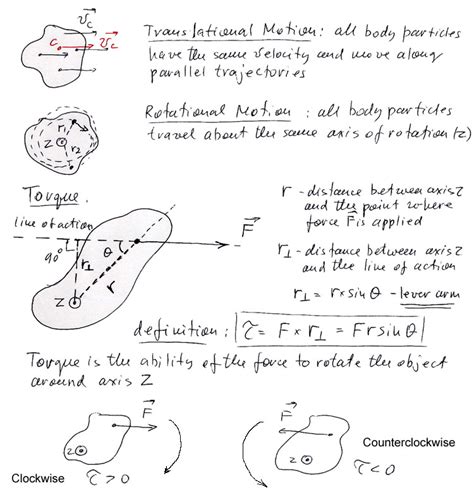 v⃗c
C v⃗c
Translational Motion: all body particles
have the same velocity and move along
parallel trajectories
r1
z r2
Rotational Motion: all body particles
travel about the same axis of rotation (z)
Torque.
line of action
90° θ F⃗
r⊥ r
z
r - distance between axis z
and the point where
force F⃗ is applied
r⊥ - distance between axis z
and the line of action
r⊥ = r × sin θ - lever arm
definition: τ = F × r⊥ = F r sin θ
Torque is the ability of the force to rotate the object
around axis Z
F⃗
z
Clockwise τ > 0
F⃗
z
Counterclockwise
τ < 0